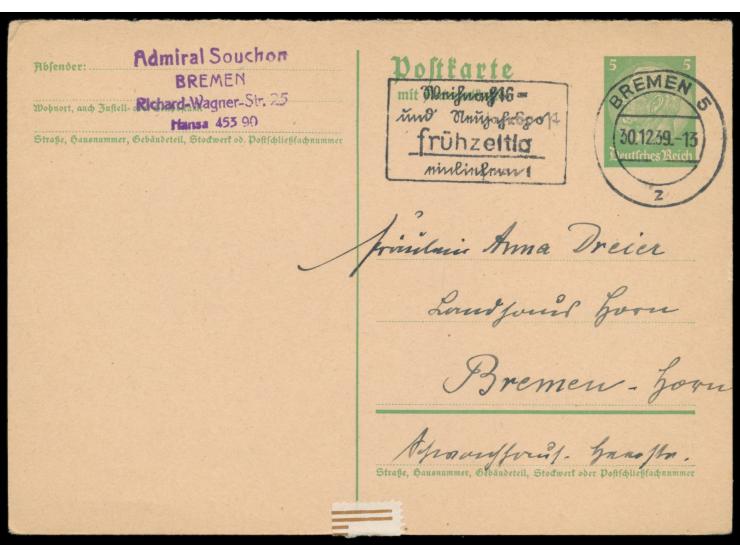 Absender:
Admiral Souchon
BREMEN
Richard-Wagner-Str. 25
Wohnort, auch Zustell- oder
Hansa 453 90
Straße, Hausnummer, Gebäudeteil, Stockwerk od. Postschließfachnummer
Postkarte
mit
Weihnachts-
und Neujahrspost
frühzeitig
einliefern!
5 5
Deutsches Reich
BREMEN 5
30.12.39.-13
z
Fräulein Anna Dreier
Landhaus Horn
Bremen-Horn
Schwachhaus. Heerstr.
Straße, Hausnummer, Gebäudeteil, Stockwerk oder Postschließfachnummer